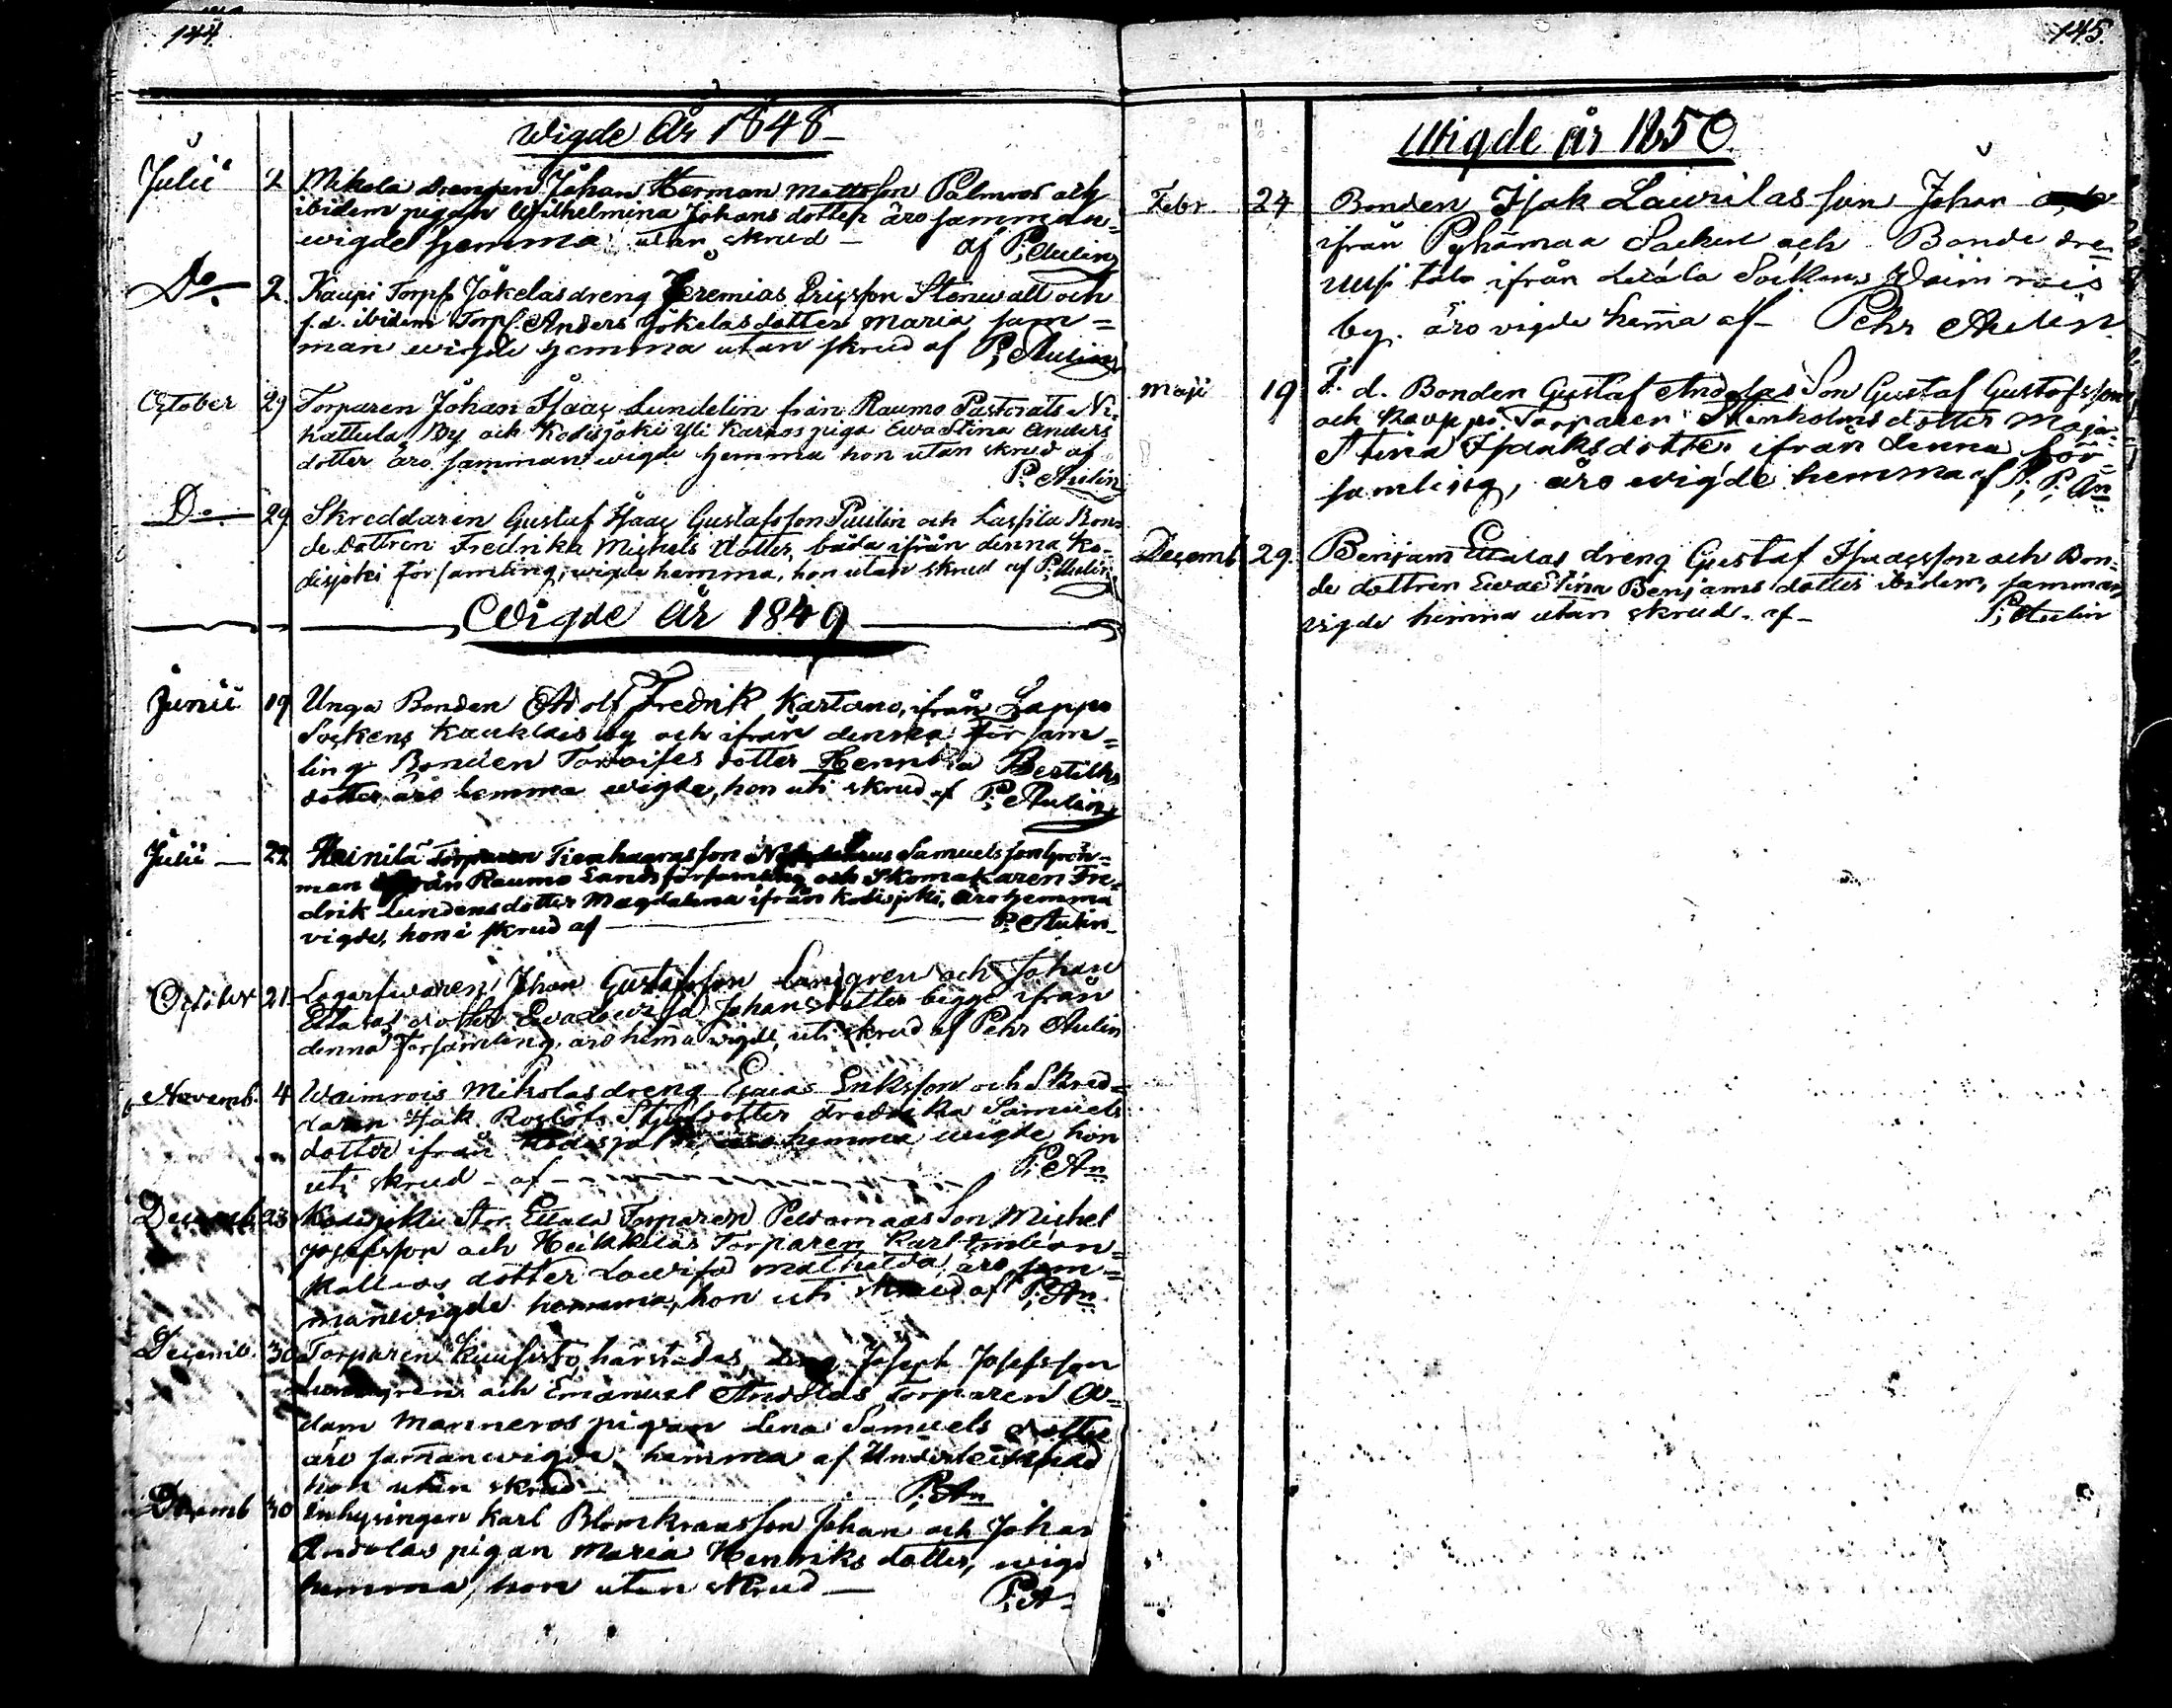 144.
Wigde År 1848
Julii 2 Mikola Drengen Johan Herman Mattsson Palmros och
ibidem pigan Wilhelmina Johans dotter äro samman=
wigde hemma utan skrud — af P; Aulin
Do. 2. Kaupi Torpf Jåkelas dreng Jeremias Ericsson Stenwall och
f.d. ibidem Torpf. Anders Jökelas dotter Maria sam=
man wigde hemma utan skrud af P; Aulin
October 29 Torparen Johan Isaac Lundelin från Raumo Pastorats
kattula By och Kodisjoki Yli Karrospiga Ewa Stina Anders
dotter äro samman wigde hemma hon utan skrud af
P: Aulin
Do. 29. Skreddaren Gustaf Isaac Gustafsson Paulin och Lassila Bon=
de dottren Fredrika Michels dotter, båda ifrån denna Ko=
disjoki församling, wigde hemma, hon utan skrud af P; Aulin
Wigde År 1849
Junii 19 Unga Bonden Adolf Fredrik Kartano, ifrån Lappo
Sockens Kauklais by och ifrån denna för sam=
ling Bonden dotter Henrika Bertils
dotter äro hemma wigde, hon uti skrud af P; Aulin
Julii — 22 Heinilä Torparen Tienhaarasson Samuelsson Grön=
man ifrån Raumo Landsförsamling och Skomakaren Fre=
drik Lundens dotter Magdalena ifrån Kodisjoki, äro hemma
vigde, hon i skrud af — P: Aulin
October 21 Johan Gustafsson Landgren och Johan
Ettalas dotter Ewa Lowisa Johansdotter begge ifrån
denna Församling, äro hemma wigde, uti skrud af Pehr Aulin
Novemb. 4 Waimrois Mikolas dreng Esaias Eriksson och Skred=
daren Isak Roslöfs Styfdotter Fredrika Samuels
dotter ifrån Kodisjoki, äro hemma wigde, hon
uti skrud - af - P; An
Decemb 23 Kodisjoki Stor Ettala Torparen Peltomaas Son Michel
Josefsson och Heikkiläs Torparen Karl
Kallios dotter Lowisa Mathilda, äro sam=
manwigde hemma, hon uti skrud af P; An
Decemb. 30 Torparen Kuusisto härstädes, dreng Joseph Josefsson
Lundgren och Emanuel Andolas Torparen A=
dam Manneros pigan Lena Samuels dotter
äro samanwigde hemma af
hon utan skrud — P; An
Decemb 30 Inhysingen Karl Blomkraasson Johan och Johan
Andolas pigan Maria Henriks dotter, wigd
hemma, hon utan skrud — P; A-
145.
Wigde år 1850.
Febr. 24 Bonden Isak Laurilas son Johan
ifrån Pyhämaa Socken och Bonde
ifrån Sockens Waimrois
by. äro vigde hemma af Pehr Aulin
Maji 19 F. d. Bonden Gustaf Andolas Son Gustaf Gustafsson
och Torparen Stenholms dotter Maja=
Stina Isaaksdotter ifrån denna för
samling, äro wigde hemma af P; An
Decemb 29. Benjam Ettalas dreng Gustaf Isaacsson och Bon=
de dottren Ewa Stina Benjams dotter ibidem, samman
vigde hemma utan skrud. af - P; Aulin